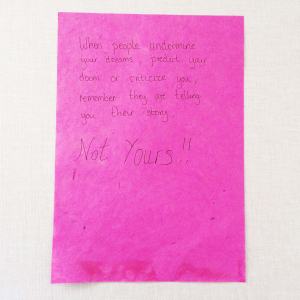 When people undermine
your dreams, predict your
doom or criticize you,
remember they are telling
you their story.
Not Yours!!